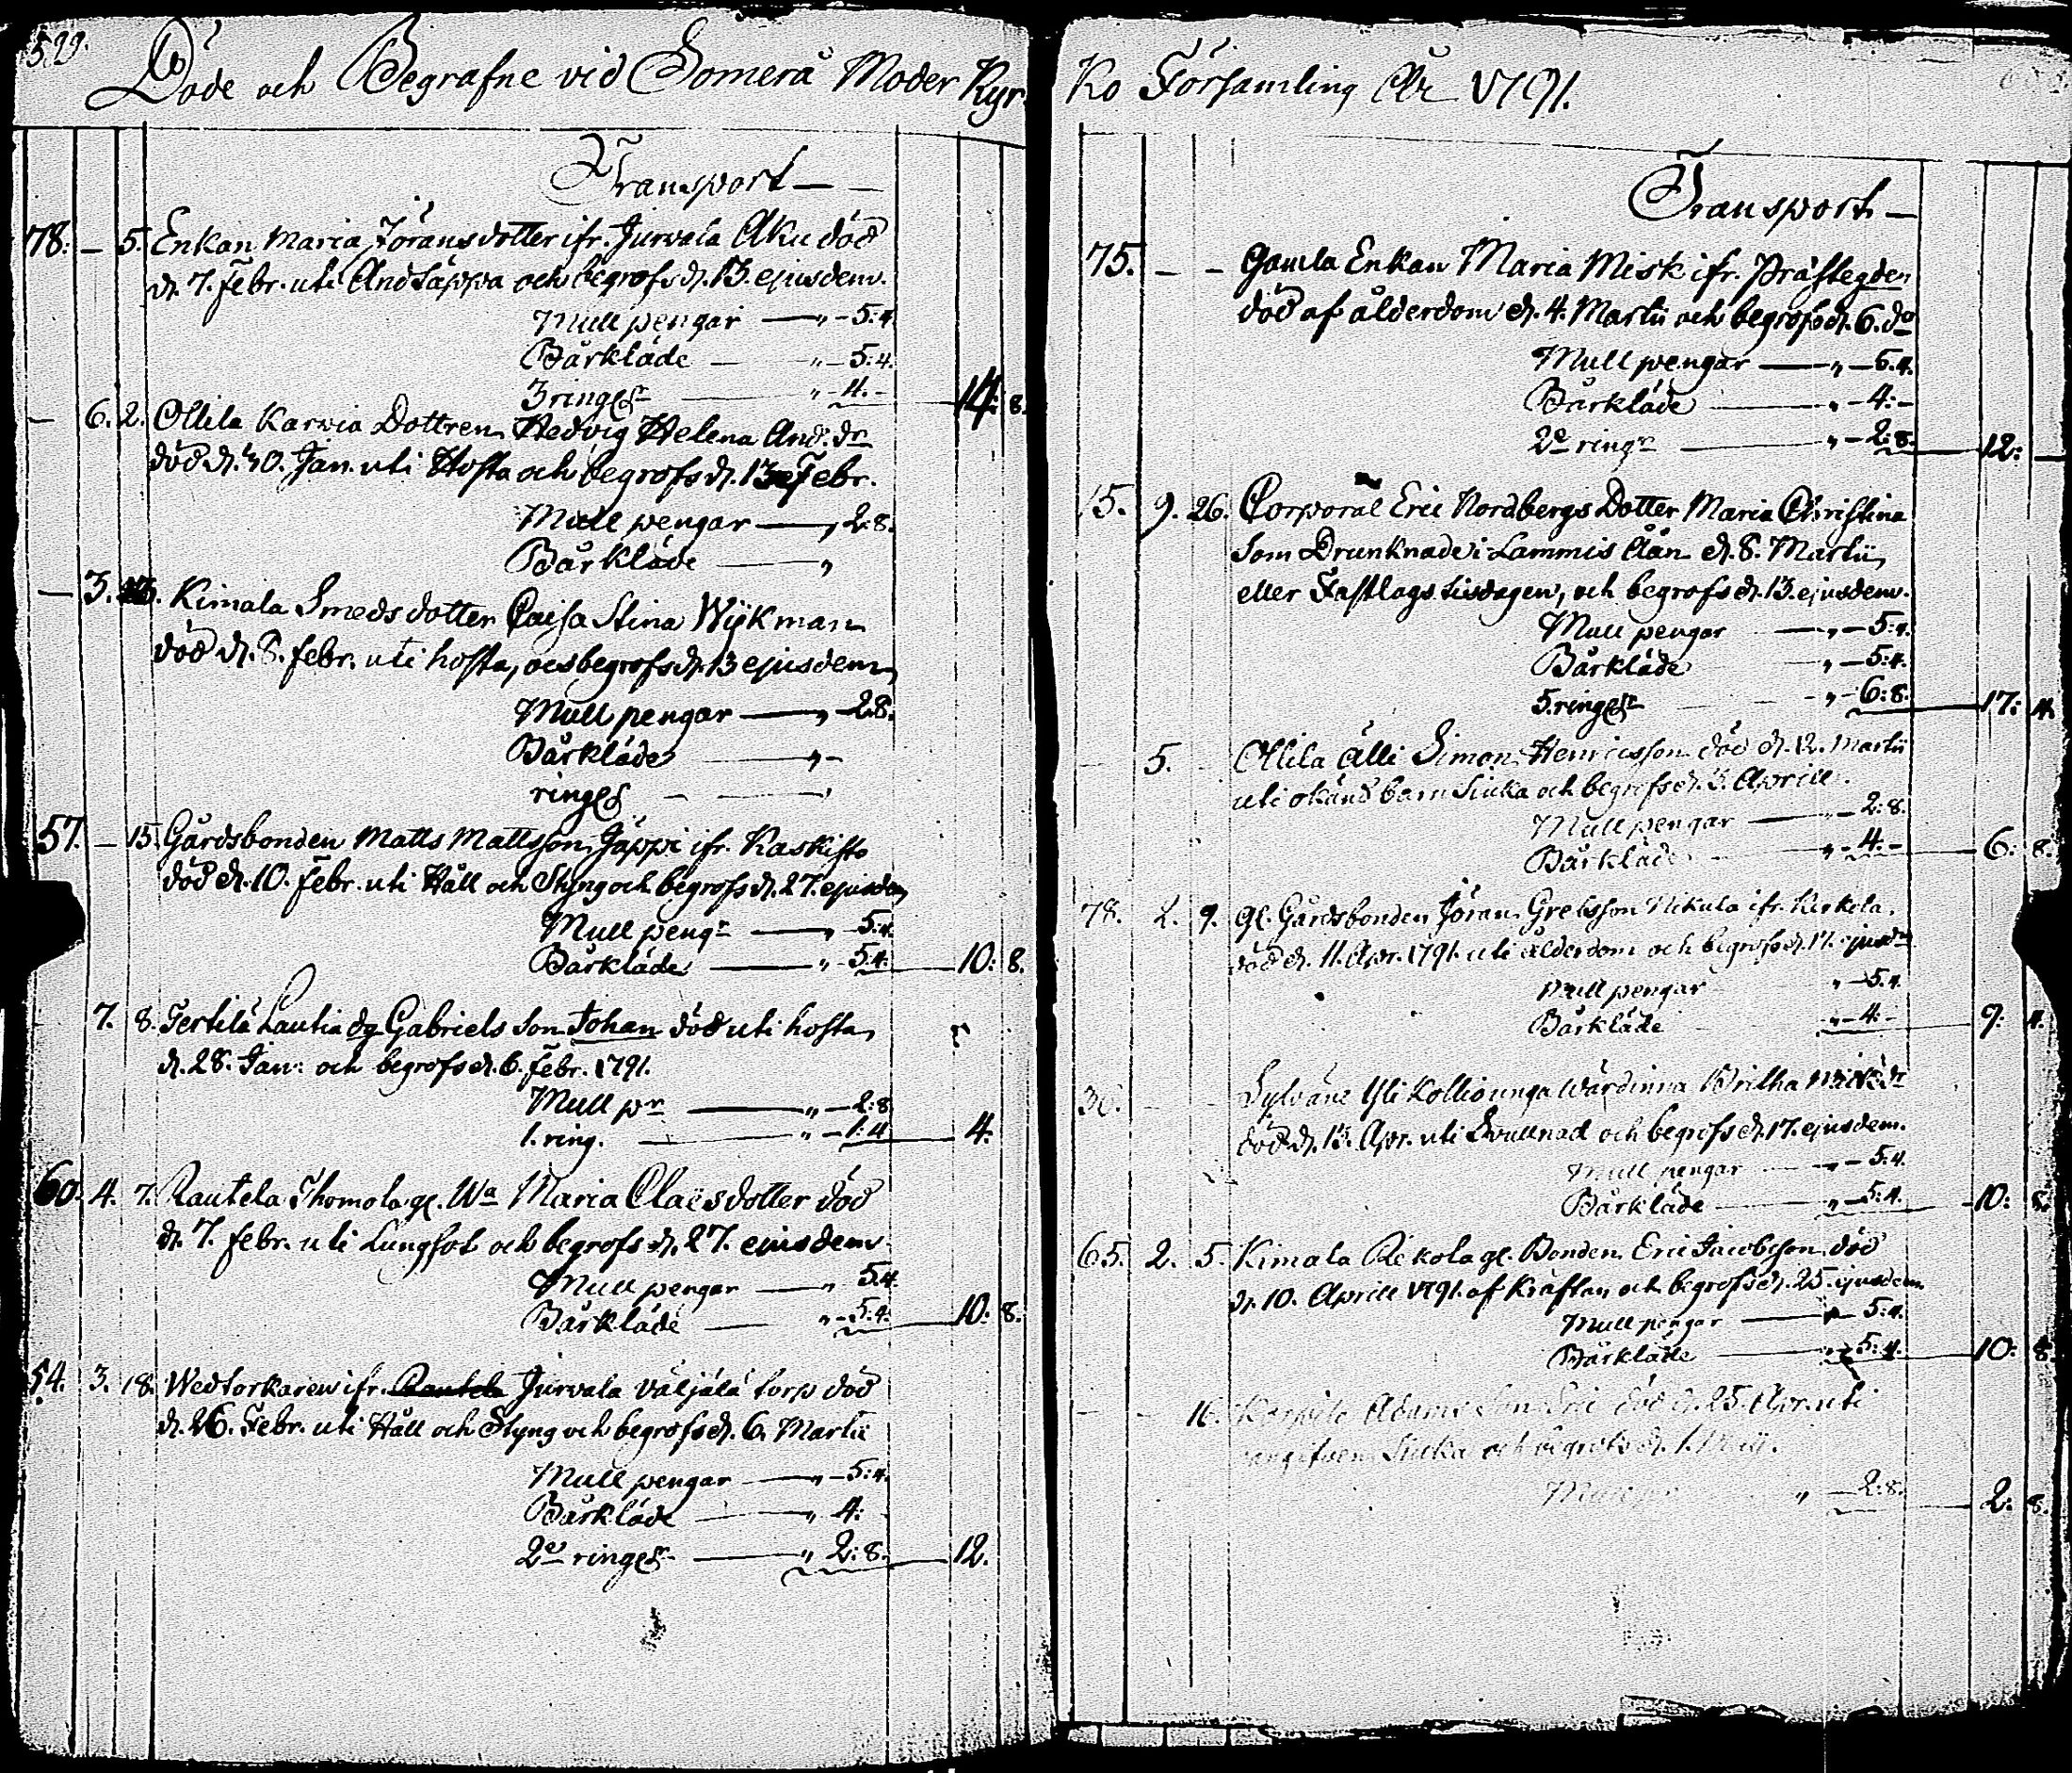 522.
Döde och Begrafne vid Somerå Moder Kyr
Transport — —
78. — 5. Enkan Maria Jöransdotter ifr. Jurvala Aku död
d. 7. Febr. uti Andtäppa och begrofs d. 13. ejusdem.
Mull pengar — „ — 5:4.
Bårkläde — „ — 5:4.
3 ring:r — „ — 4. — 14: 8.
— 6. 2. Ollila Karvia Dottren Hedvig Helena And. dr
död d. 30. Jan. uti Hosta och begrofs d. 13 Febr.
Mull pengar — „ 2:8.
Bårkläde — „
— 3. Kimala Smeds dotter Caisa Stina Wijkman
död d. 8. febr. uti hosta, och begrofs d. 13 ejusdem
Mull pengar — „ — 2:8.
Bårkläde — „ —
ring — „
57. — 15. Gårdsbonden Matts Mattsson Jäppi ifr. Kaskisto
död d. 10. febr. uti Håll och Styng och begrofs d. 27. ejusdem
Mull peng:r — „ — 5:4.
Bårkläde — „ — 5:4. — 10: 8.
7. 8. Tertilä Lautia dg Gabriels Son Johan död uti hosta
d. 28. Jan: och begrofs d. 6. febr. 1791.
Mull pr — „ — 2:8
1. ring. — „ — 1:4 — 4.
60. 4. 7. Rautela Thomola gl. Wa Maria Claësdotter död
d. 7. febr. uti Lungsot och begrofs d. 27. ejusdem
Mull pengar — „ 5:4.
Bårkläde — „ — 5:4. — 10: 8.
54. 3. 18. ifr. Rautela Jurvala Väljälä torp död
d. 26. Febr. uti Håll och Styng och begrofs d. 6. Martii
Mull pengar — „ — 5:4.
Bårkläde — „ 4:
2e ring:r — „ 2:8. — 12.
Ko Församling År 1791.
Transport —
75. — — Gamla Enkan Maria Misk ifr. Prästegden
död af ålderdom d. 4. Martii och begrofs d. 6. do
Mull pengar — „ — 5:4.
Bårkläde — „ — 4: —
2e ring:r — „ — 2:8. — 12: —
15. 9. 26. Corporal Eric Nordbergs Dotter Maria Christina
Som Drunknade i Lammis Åån d. 8. Martii,
eller Fastlags tisdagen, och begrofs d. 13. ejusdem.
Mull pengar — „ — 5:4.
Bårkläde „ — 5:4.
5. ring:r — „ — 6:8. — 17: 4.
— 5. — Ollila Älli Simon Henricsson död d. 12. Martii
uti okänd barn Siuka och begrofs d. 3. Aprill.
Mull pengar — „ — 2:8.
Bårkläde — „ — 4: — 6: 8.
78. 2. 9. gl. Gårdsbonden Jöran Grelsson Nikula ifr. Kerkola.
död d. 11. Apr. 1791. uti ålderdom och begrofs d. 17. ejusdem
Mull pengar „ — 5:4.
Bårkläde „ — 4: — 9: 4.
30. — — Sylväne Yli Kollio unga Wärdinna Britha
död d. 13. Apr. uti Svullnad och begrofs d. 17. ejusdem.
Mull pengar — „ — 5:4.
Bårkläde — „ — 5:4. — 10: 8.
65. 2. 5. Kimala Rekola gl. Bonden Eric Jacobsson död
d. 10. Aprill 1791. af Kräftan och begrofs d. 25. ejusdem
Mull pengar — „ — 5:4.
Bårkläde — „ 5:4. — 10: 8.
— — 16. Adams Son Eric död d. 25. Apr. uti
Siuka och begrofs d. 1. Maij.
Mull „ — 2:8. — 2: 8.